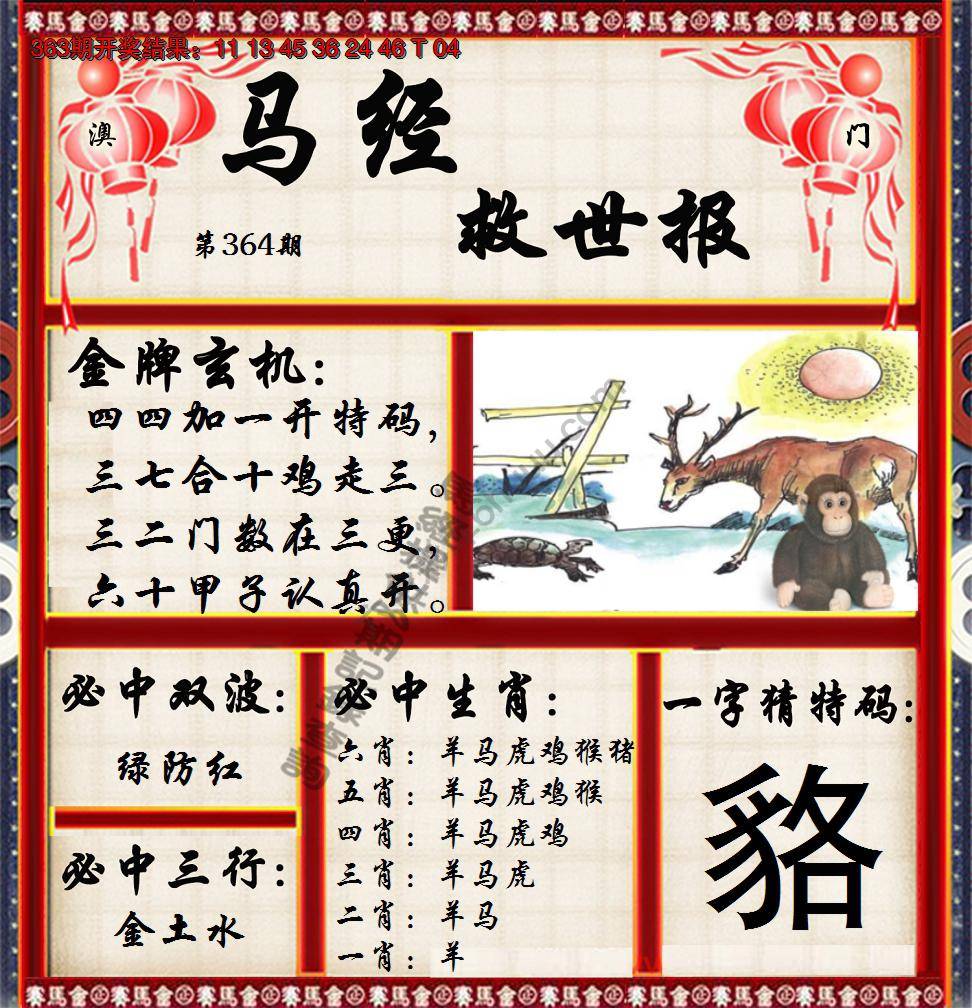 363期开奖结果：11 13 45 36 24 46 T 04
澳
门
马经
救世报
第364期
金牌玄机：
四四加一开特码，
三七合十鸡走三。
三二门数在三更，
六十甲子认真开。
必中双波：
绿防红
必中三行：
金土水
必中生肖：
六肖：羊马虎鸡猴猪
五肖：羊马虎鸡猴
四肖：羊马虎鸡
三肖：羊马虎
二肖：羊马
一肖：羊
一字猜特码：
貉